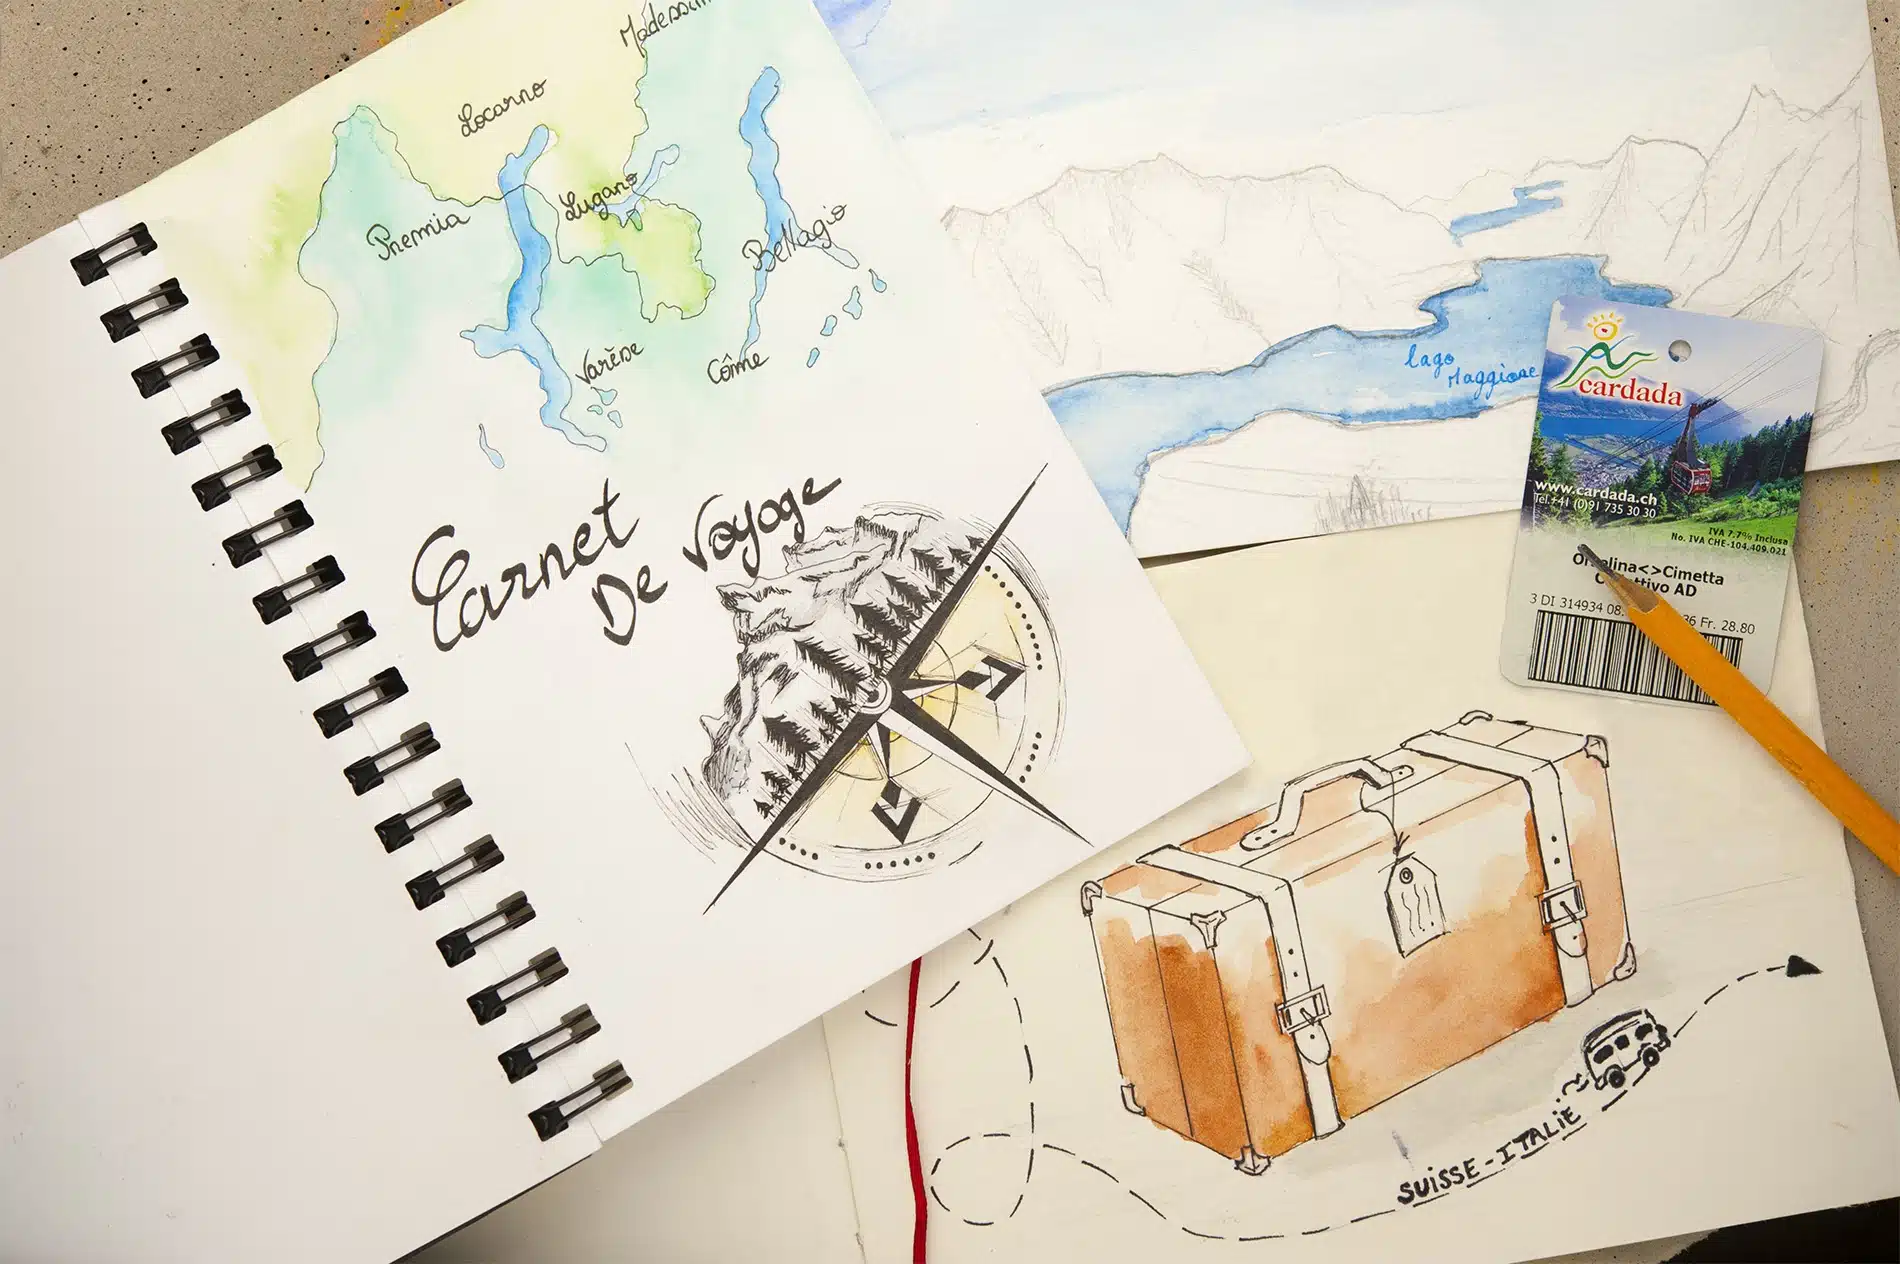 Locarno
Premia
Lugano
Bellagio
Varèse
Côme
Carnet
De Voyage
lago
Maggiore
cardada
www.cardada.ch
Tel.+41 (0)91 735 30 30
IVA 7.7% Inclusa
No. IVA CHE-104.409.021
<>Cimetta
AD
3 DI 314934 08. 36 Fr. 28.80
SUISSE-ITALIE